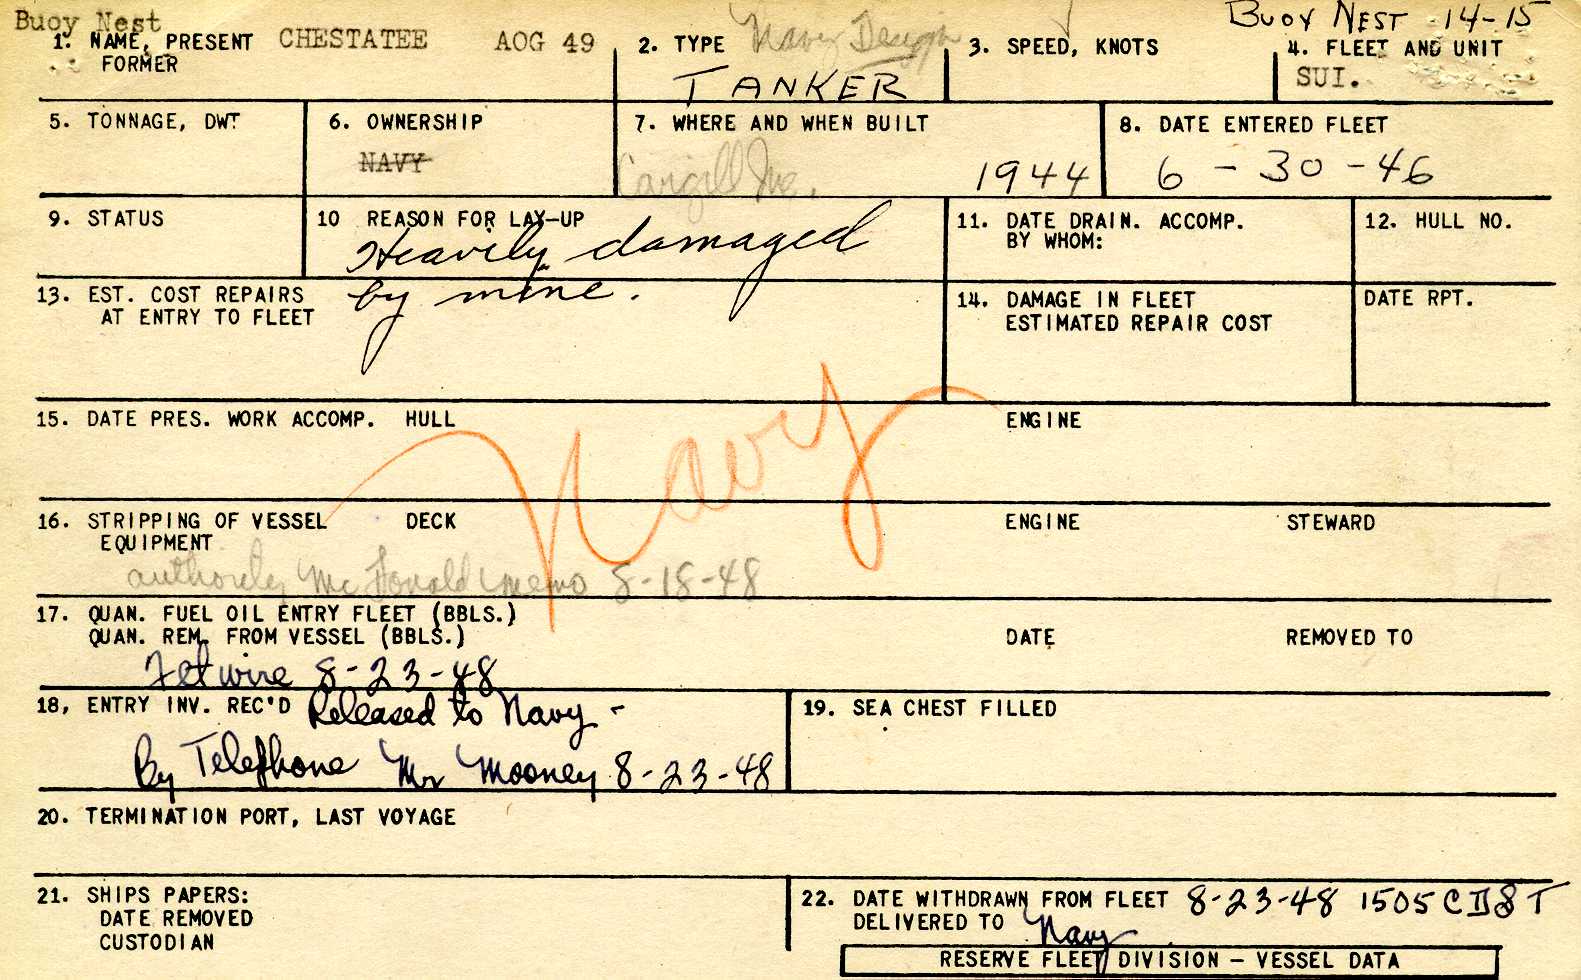 Buoy Nest
BUOY NEST 14-15
1. NAME, PRESENT CHESTATEE AOG 49
FORMER
2. TYPE Navy Design
TANKER
3. SPEED, KNOTS
4. FLEET AND UNIT
SUI.
5. TONNAGE, DWT
6. OWNERSHIP
NAVY
7. WHERE AND WHEN BUILT
Cargill Inc. 1944
8. DATE ENTERED FLEET
6-30-46
9. STATUS
10 REASON FOR LAY-UP
Heavily damaged
by mine.
11. DATE DRAIN. ACCOMP.
BY WHOM:
12. HULL NO.
13. EST. COST REPAIRS
AT ENTRY TO FLEET
14. DAMAGE IN FLEET
ESTIMATED REPAIR COST
DATE RPT.
Navy
15. DATE PRES. WORK ACCOMP. HULL ENGINE
16. STRIPPING OF VESSEL DECK ENGINE STEWARD
EQUIPMENT
McDonald memo 8-18-48
17. QUAN. FUEL OIL ENTRY FLEET (BBLS.)
QUAN. REM. FROM VESSEL (BBLS.) DATE REMOVED TO
8-23-48
18, ENTRY INV. REC'D Released to Navy -
By Telephone Mr Mooney 8-23-48
19. SEA CHEST FILLED
20. TERMINATION PORT, LAST VOYAGE
21. SHIPS PAPERS:
DATE REMOVED
CUSTODIAN
22. DATE WITHDRAWN FROM FLEET 8-23-48 1505 CDST
DELIVERED TO Navy
RESERVE FLEET DIVISION - VESSEL DATA